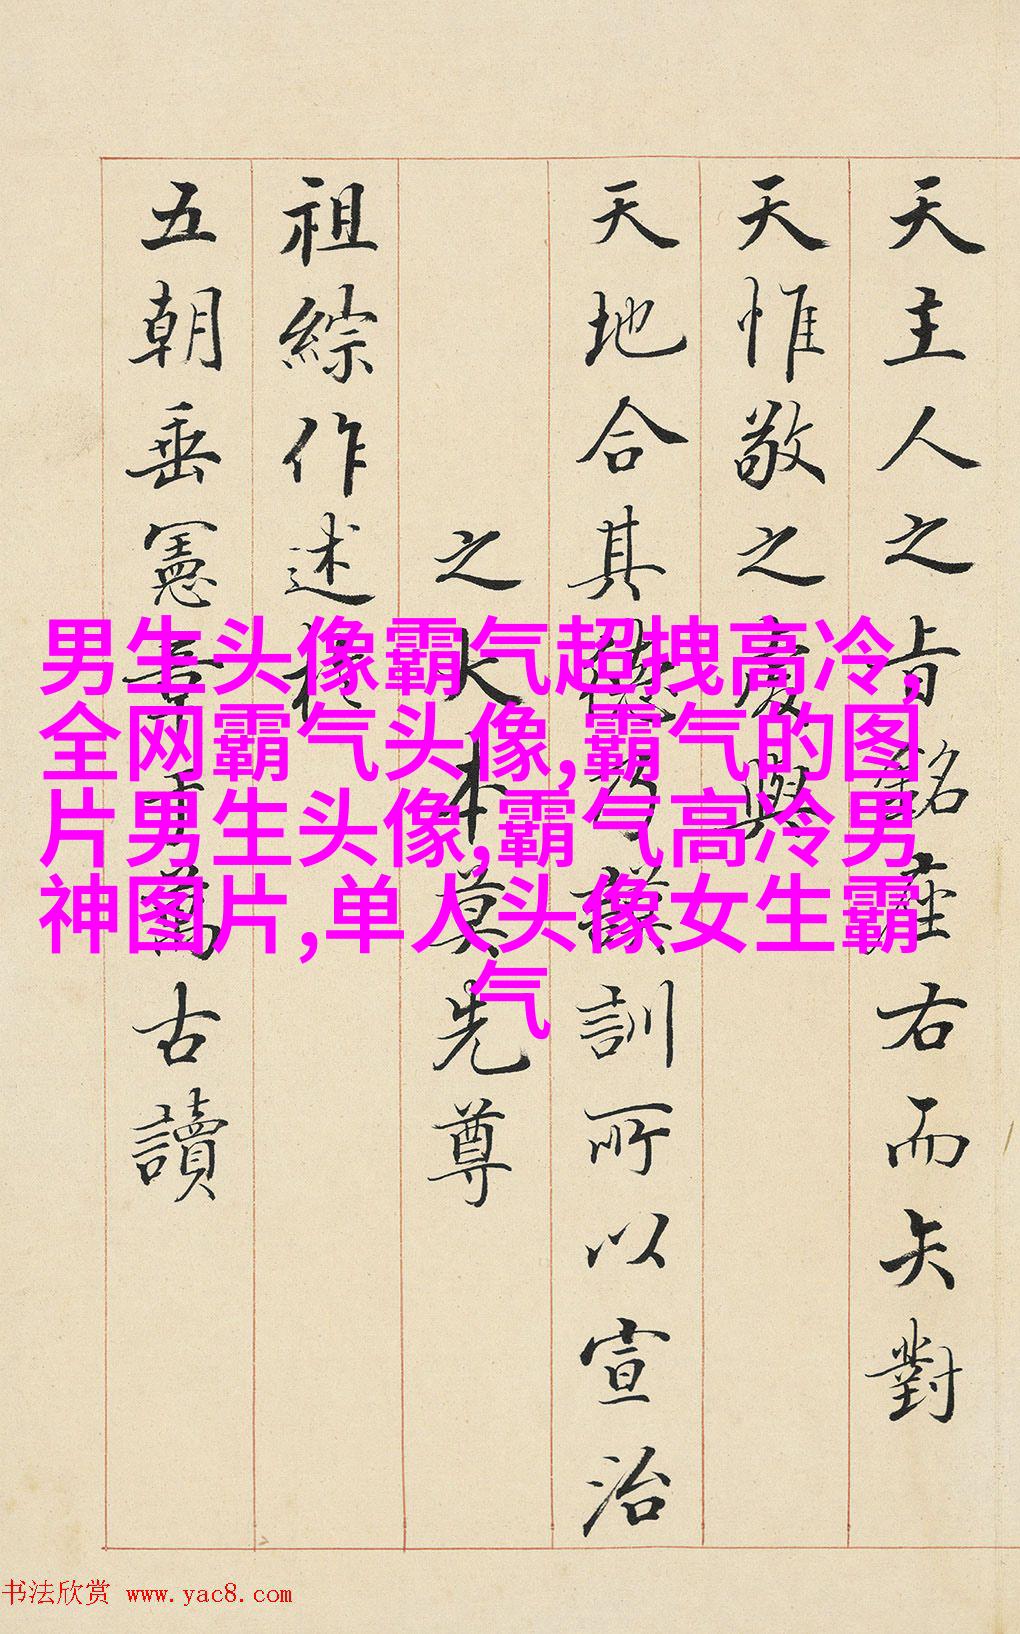 天主人之旨銘座右而矢對
天惟敬之虔與
天地合其德乃謨訓所以宣治
之大本莫先尊
祖綜作述
五朝垂憲萬古讀
男生头像霸气超拽高冷,
全网霸气头像,霸气的图
片男生头像,霸气高冷男
神图片,单人头像女生霸
气
书法欣赏 www.yac8.com